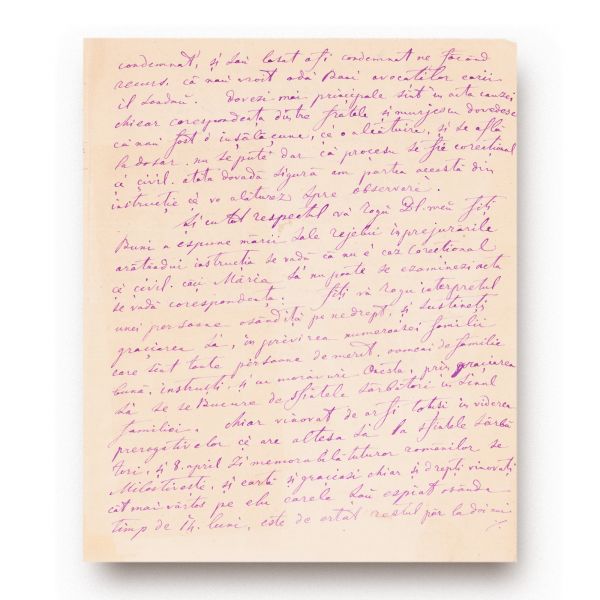 condemnat, și s'au lasat a fi condemnat ne făcând
recurs, că n'au vroit a dă bani avocatilor carii
il Dovezi mai principale sînt in acta cauzei
chiar corespondența dintre fratele și dovedesc
că n'au fost o insălăcĭune, ce o alcătuire, și se află
la dosar. nu se pute dar că procesu se fie corectional
ci civil. atata dovadă sigură am partea aceasta din
instrucție că vo alăturez spre observere.
Și cu tot respectul vă rogŭ Dl. meŭ fiți
Buni a espune mării sale rejelui inprejurările
arătandui instrucția se vadă ca nu e caz corectional
ci civil. caci Măria Sa nu poate se examineze acta
se vadă corespondența. Fiți vă rogu interpretul
unei persoane osîndită pe nedrept, și susțineți
grațiarea sa, in privirea numeroasei familii
care sînt toate persoane de merit, oameni de familie
bună, instruiți, și cu moravuri oneste, prin grațiarea
sa se se Bucure de sfintele sărbători in sinul
familiei. chiar vinovat de ar fi totusi in viderea
prerogativelor ce are altesa sa la sfintele sărbă
tori, și 8. april zi memorabilă tuturor romanilor se
Milostivește, și eartă și grațiasi chiar și drepți vinovați
cât mai vârtos pe elu carele s'au espiat osânda
timp de 14. luni, este de ertat restul păr la doi ani